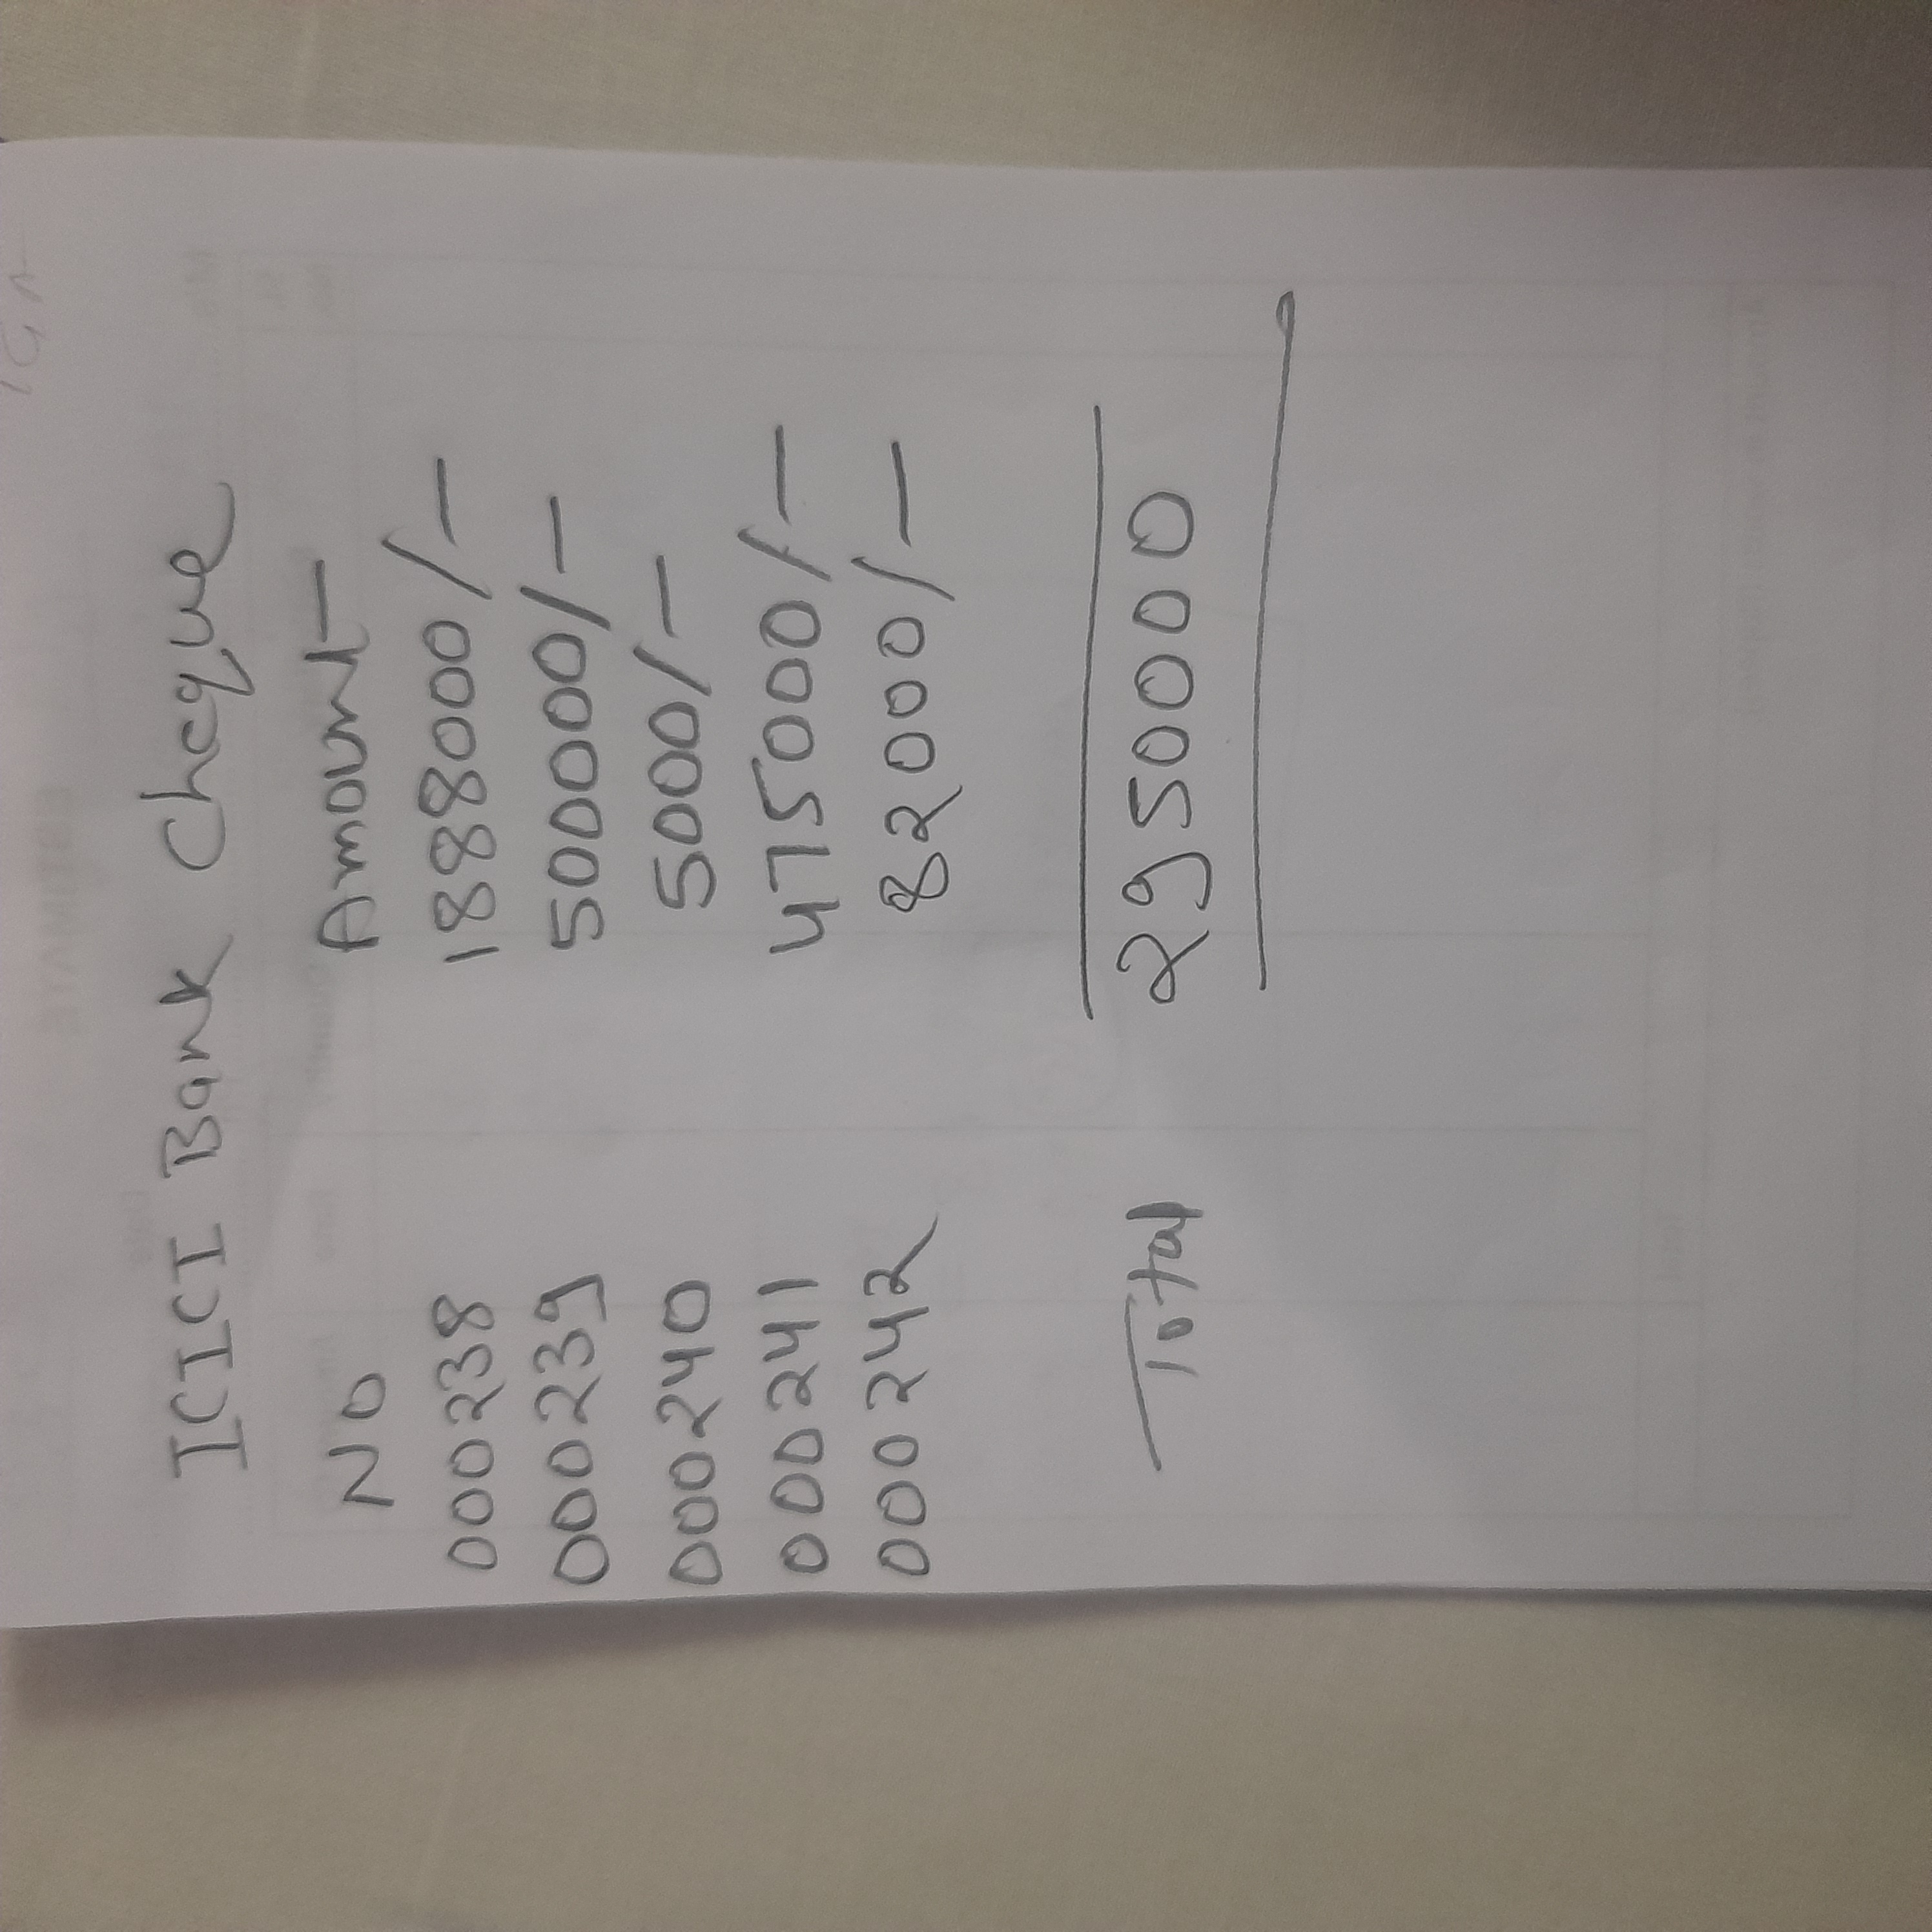 ICICI Bank Cheque
NO Amount
000238 1888000/-
000239 500000/-
000240 5000/-
000241 475000/-
000242 82000/-
Total 2950000